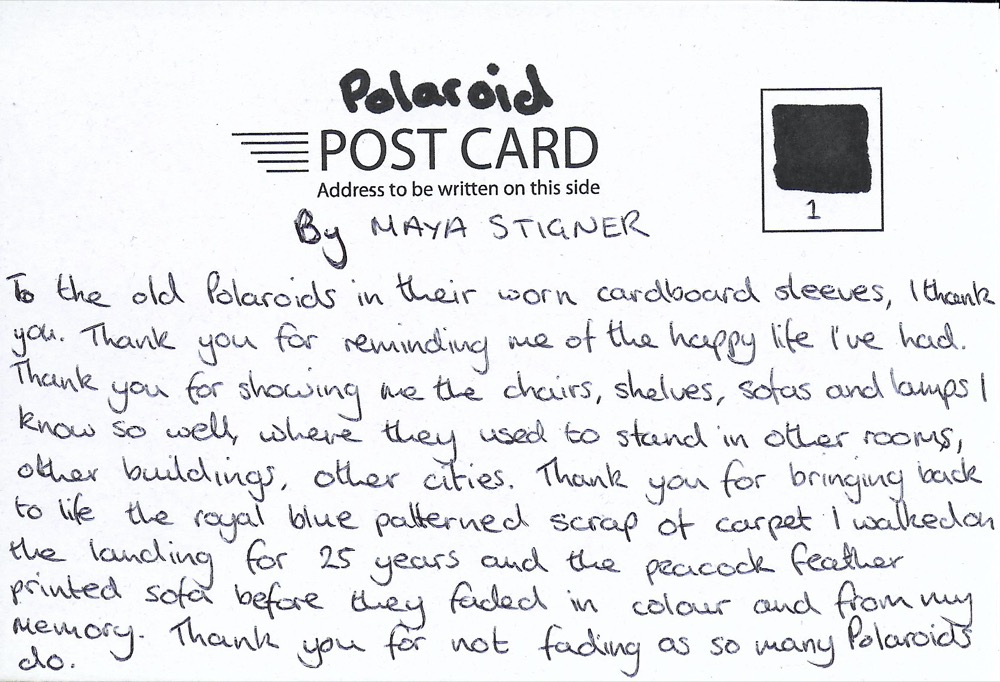 Polaroid
POST CARD
Address to be written on this side
1
By MAYA STIGNER
To the old Polaroids in their worn cardboard sleeves, I thank
you. Thank you for reminding me of the happy life I've had.
Thank you for showing me the chairs, shelves, sofas and lamps I
know so well, where they used to stand in other rooms,
other buildings, other cities. Thank you for bringing back
to life the royal blue patterned scrap of carpet I walked on
the landing for 25 years and the peacock feather
printed sofa before they faded in colour and from my
memory. Thank you for not fading as so many Polaroids
do.